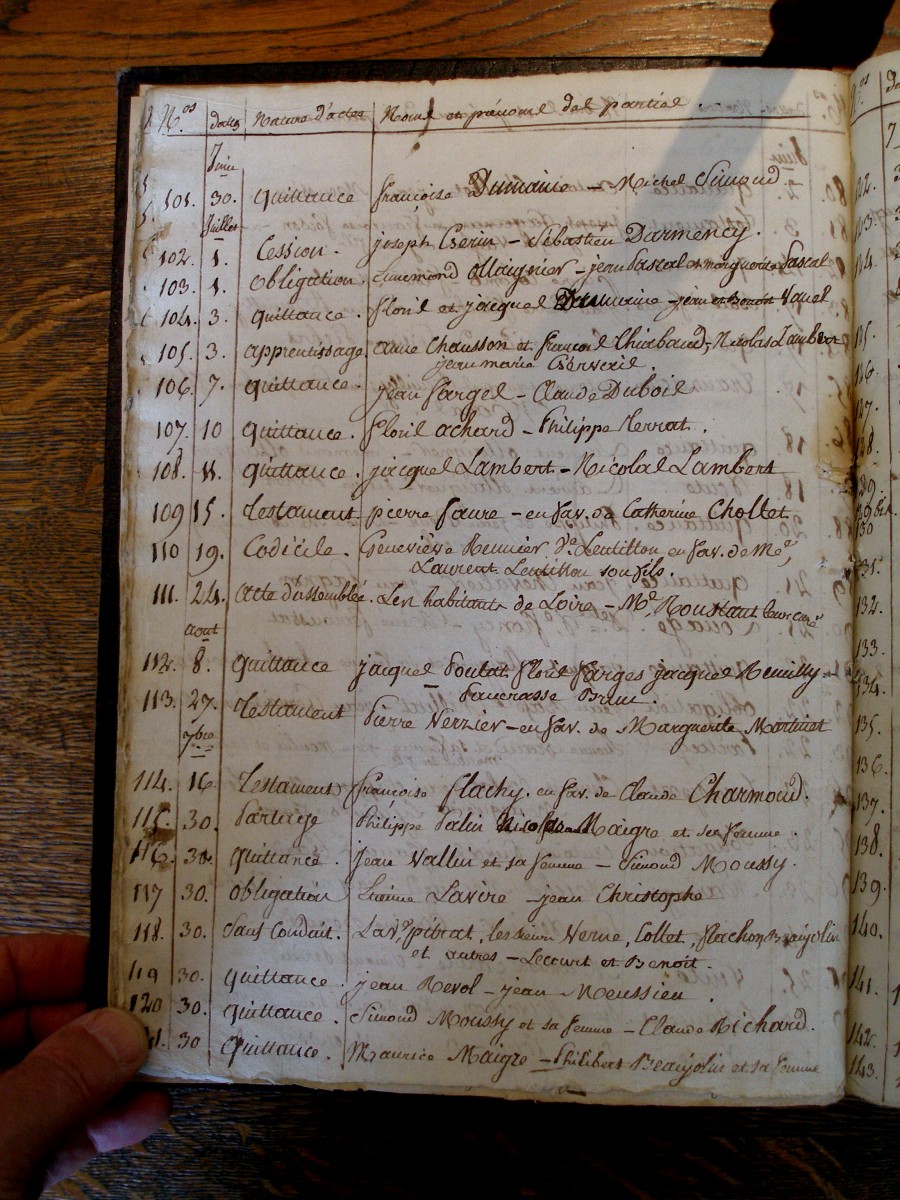 N.os dates Nature d'actes Noms et prénoms des parties
Juin
101. 30. quittance françoise Dumaine - Michel Simond
Juillet
102. 1. Cession. joseph - Sébastien Darmency.
103. 1. obligation. ollagnier - jean Pascal et marguerite Pascal
104. 3. quittance. floris et jacques Dumaine - jean et Benoit
105. 3. apprentissage anne Chausson et françois Thiebaud, Nicolas Lambert
jeanmarie
106. 7. quittance. jean farges - Claude Dubois
107. 10 quittance. floris achard - Philippe
108. 11. quittance. jacques Lambert - Nicolas Lambert
109 15. Testament pierre faure - en fav. de Catherine Chollet
110 19. Codicile. Geneviève Meunier Ve. Lentillon en fav. de Me,
Laurent Lentillon son fils.
111. 24. acte d'assemblée. Les habitants de Loire - Mr. Roustaut leur curé
aout
112. 8. quittance jacques floris farges jacques -
Brun.
113. 27. Testament pierre Verzier - en fav. de Marguerite Martinet
7bre
114. 16. Testament françoise flachy. en fav. de Claude Charmond.
115. 30. Partage Philippe Maigre et sa femme.
116. 30. quittance. Jean Vallin et sa femme - Simond Moussy.
117 30. obligation Lavire - jean Christophe
118. 30. Sauf Conduit. La Ve. pibrat, les sieurs Verne, Collet, flachon, Beaujolin
et autres - Lecourt et Benoit.
119 30. quittance. jean Revol - jean Meussieu.
120 30. quittance. Simond Moussy et sa femme - Claude Richard.
30 quittance. Maurice Maigre - Philibert Beaujolin et sa femme